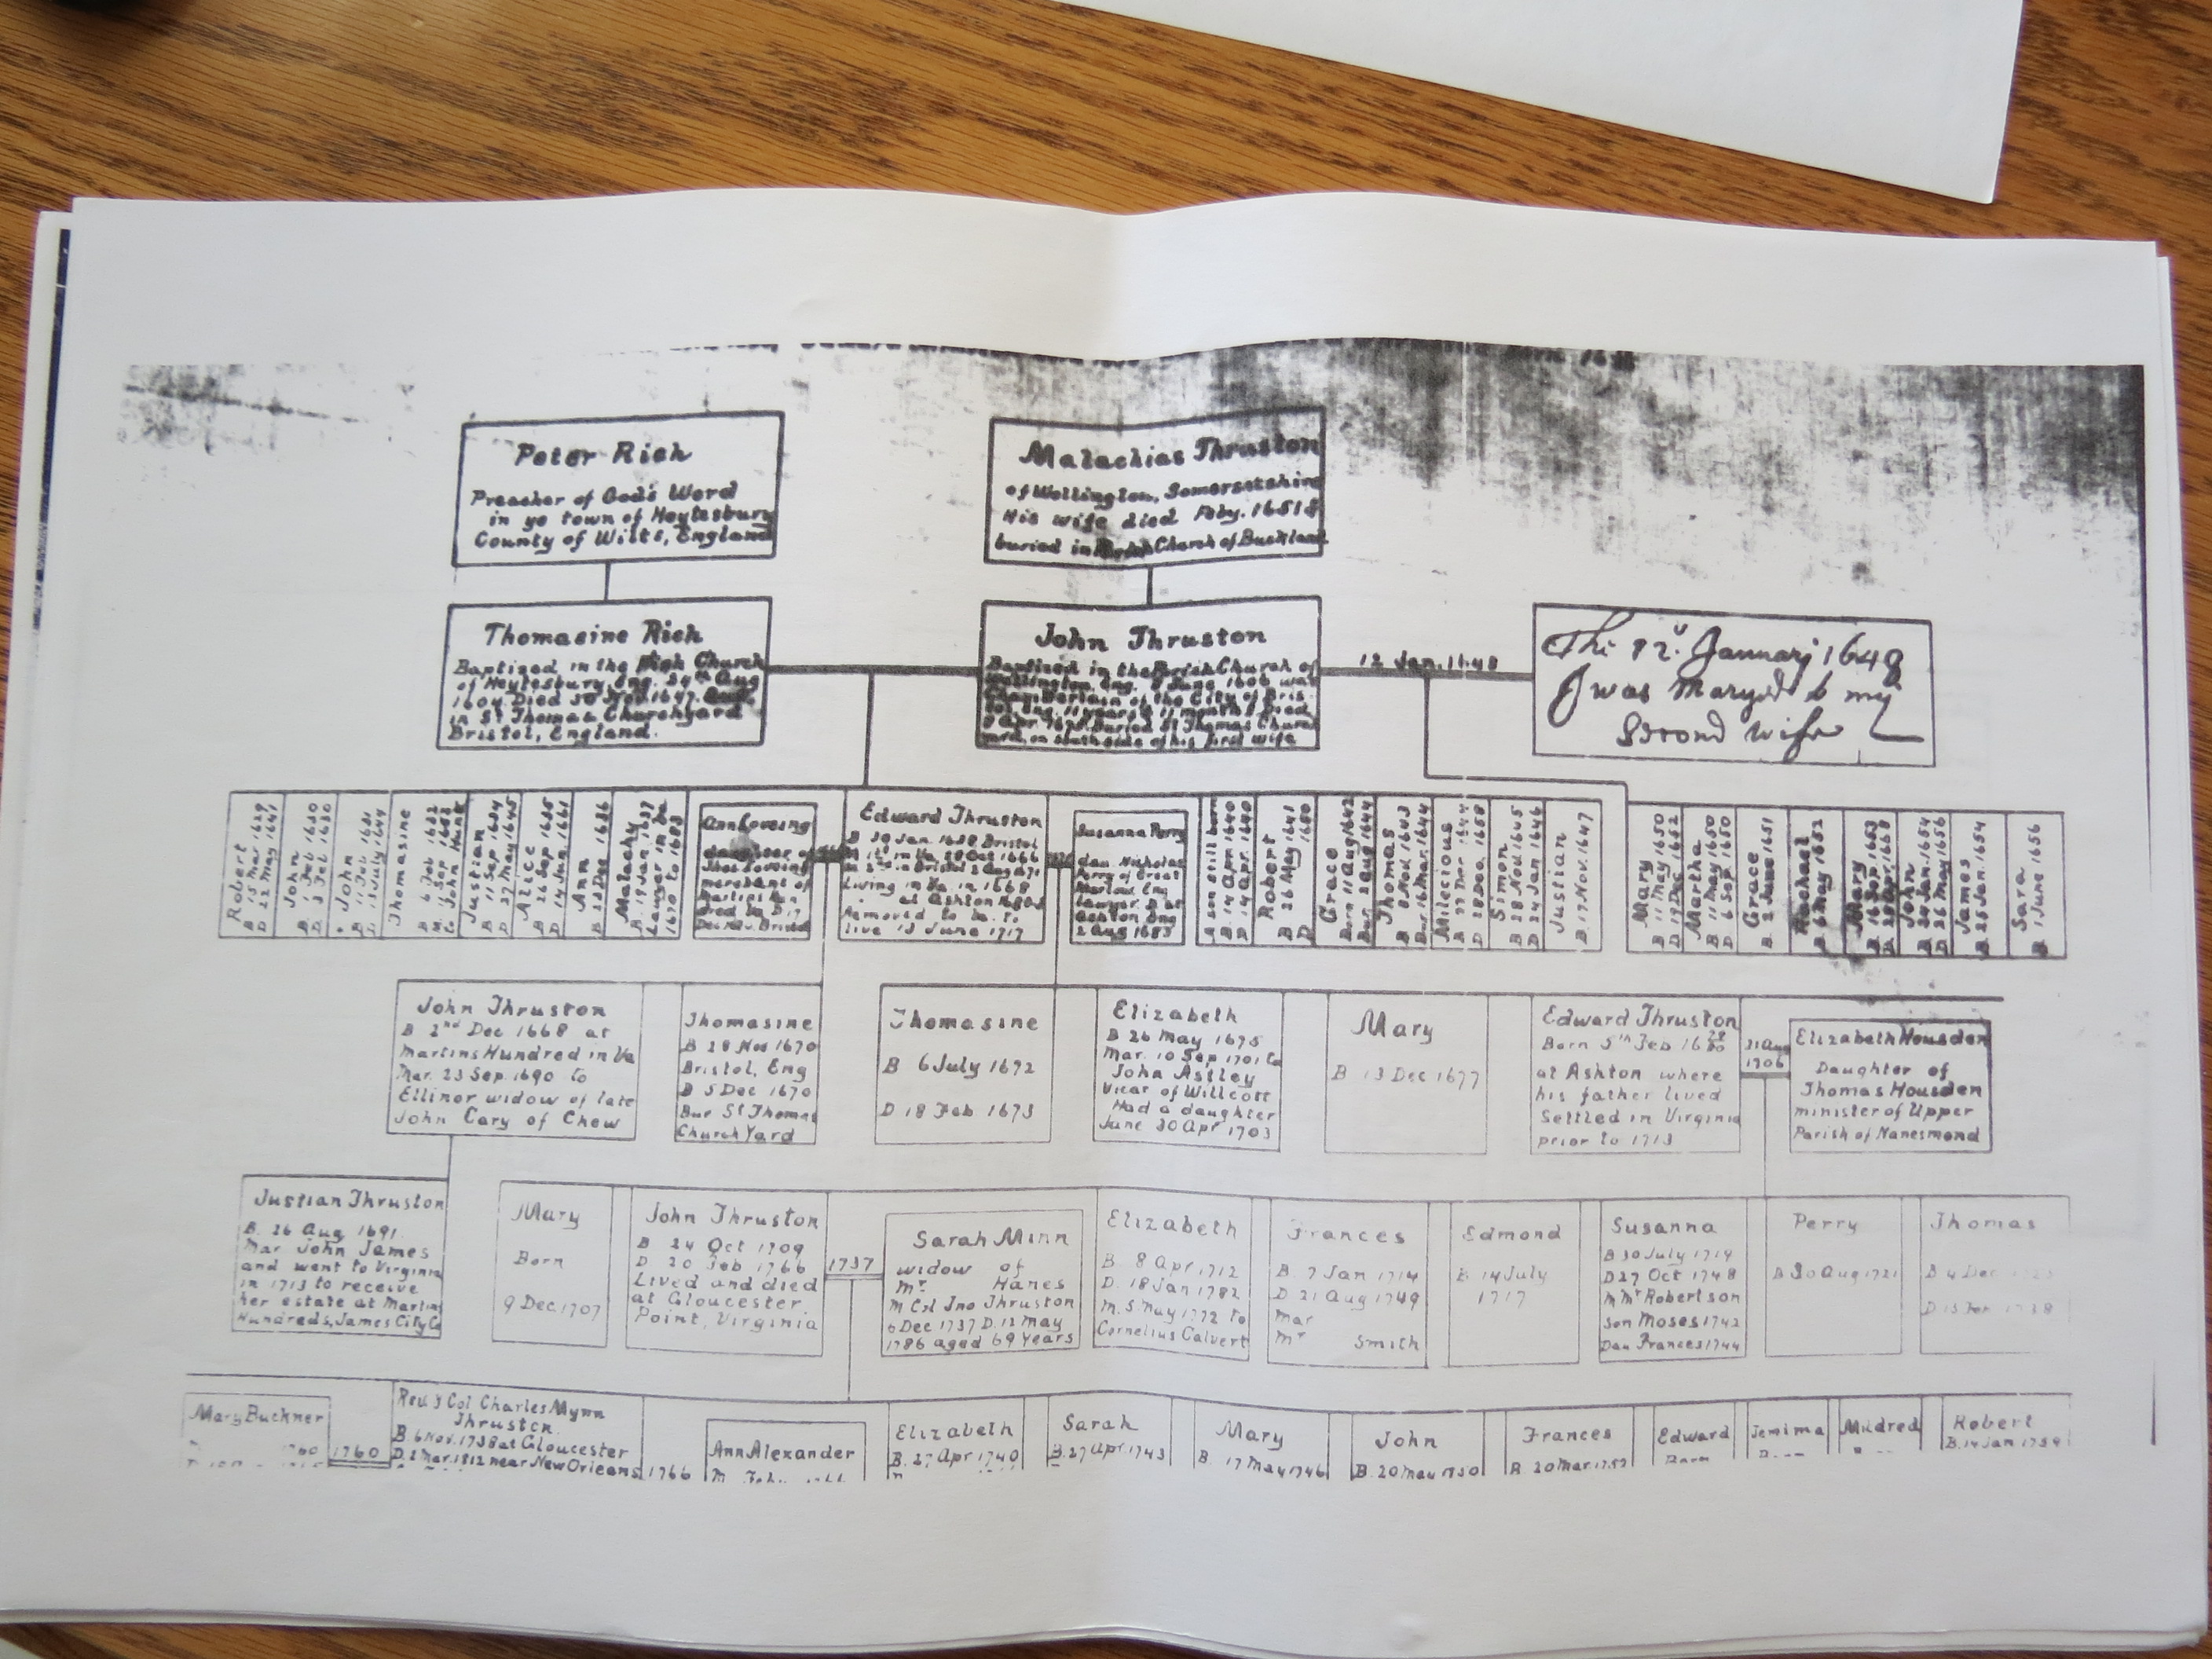 Peter Rich
Preacher of God's Word
in ye town of Heytesbury
County of Wilts, England
Malachias Thruston
of Wellington, Somersetshire
His wife died Feby. 1651 &
buried in Church of Buckland
Thomasine Rich
Baptized in the Church
of Heytesbury Eng. Aug
1604 Died 1647
in St Thomas Churchyard
Bristol, England.
John Thruston
Baptized in the Parish Church of
Wellington, Eng. 8 June 1606 was
Chamberlain of the City of Bris-
tol Eng. 11 years & 11 months Died
Apr. Buried St Thomas Church
yard, on south side of his first wife
12 Jan.
The 12 January 1648
I was Maryed to my
Second wife
Robert
B 15 Mar 1629
D 22 May 1641
John
B 1 Feb 1630
D 3 Feb 1630
John
B 11 July 1631
D 11 July 1644
Thomasine
B 6 Feb 1632
to John Hunt
Justian
B 11 Sep 1634
D 27 May 1645
Alice
B 26 Sep 1635
D 14 Jan 1661
Ann
B 28 Dec 1636
Malachy
B 19 Jan 1637
Lawyer in
1670 to 1683
Ann Loveing
daughter of
Jhos Loveing
merchant of
Martins Hun
Edward Thruston
B 30 Jan 1638 Bristol
M 1st in Va 28 Oct 1666
M 2nd in Bristol 2 Aug 1671
Living in Va. in 1668
at Ashton
Removed to
live 13 June 1717
Susanna Perry
dau. Nicholas
Perry of Great
Marlow Eng
Lawyer D at
Ashton Eng
2 Aug 1683
A son still born
B 14 Apr. 1640
D 14 Apr. 1640
Robert
B 26 May 1641
D 1680
Grace
Born 11 Aug 1642
Bur. 2 Aug 1644
Thomas
B 8 Nov. 1643
Bur 16 Mar. 1644
Milecious
B 27 Dec 1644
D 28 Dec. 1658
Simon
B 28 Nov. 1645
D 24 Jan 1646
Justian
B. 17 Nov. 1647
Mary
B 11 May 1650
D 19 Dec 1652
Martha
B 11 May 1650
D 6 Sep 1650
Grace
B. 2 June 1651
Rachael
B 6 May 1652
Mary
B 16 Sep 1653
D 28 Apr. 1668
John
B 24 Jan. 1654
D 26 May 1656
James
B 25 Jan. 1654
Sara
B 1 June 1656
John Thruston
B 2nd Dec 1668 at
Martins Hundred in Va
Mar. 23 Sep. 1690 to
Ellinor widow of late
John Cary of Chew
Thomasine
B 28 Nov 1670
Bristol, Eng
D 5 Dec 1670
Bur St Thomas
Church Yard
Thomasine
B 6 July 1672
D 18 Feb 1673
Elizabeth
B 26 May 1675
Mar. 10 Sep 1701 to
John Astley
Vicar of Willcott
Had a daughter
Jane 30 Apr 1703
Mary
B 13 Dec 1677
Edward Thruston
Born 5th Feb 16 79/80
at Ashton where
his father lived
Settled in Virginia
prior to 1713
21 Aug
1706
Elizabeth Housden
Daughter of
Thomas Housden
minister of Upper
Parish of Nanesmond
Justian Thruston
B. 26 Aug 1691.
Mar John James
and went to Virginia
in 1713 to receive
her estate at Martins
Hundreds, James City Co
Mary
Born
9 Dec 1707
John Thruston
B 24 Oct 1709
D 20 Feb 1766
Lived and died
at Gloucester
Point, Virginia
1737
Sarah Minn
widow of
Mr. Hanes
M Col Jno Thruston
6 Dec 1737 D. 12 May
1786 aged 69 Years
Elizabeth
B. 8 Apr 1712
D. 18 Jan 1782
M. 5 May 1772 to
Cornelius Calvert
Frances
B. 7 Jan 1714
D 21 Aug 1749
Mar
Mr Smith
Edmond
B 14 July
1717
Susanna
B 30 July 1719
D 27 Oct 1748
M Mr Robertson
Son Moses 1742
Dau Frances 1744
Perry
B 30 Aug 1721
Thomas
B 4 Dec
Mary Buckner
1760
1760
Rev. & Col Charles Mynn
Thruston
B 6 Nov. 1738 at Gloucester
D. 2 Mar. 1812 near New Orleans
1766
Ann Alexander
Elizabeth
B. 27 Apr 1740
Sarah
B. 27 Apr. 1743
Mary
B. 17 May 1746
John
B. 20 May 1750
Frances
B. 20 Mar. 1752
Edward
Born
Jemima
Mildred
Robert
B. 14 Jan 1759